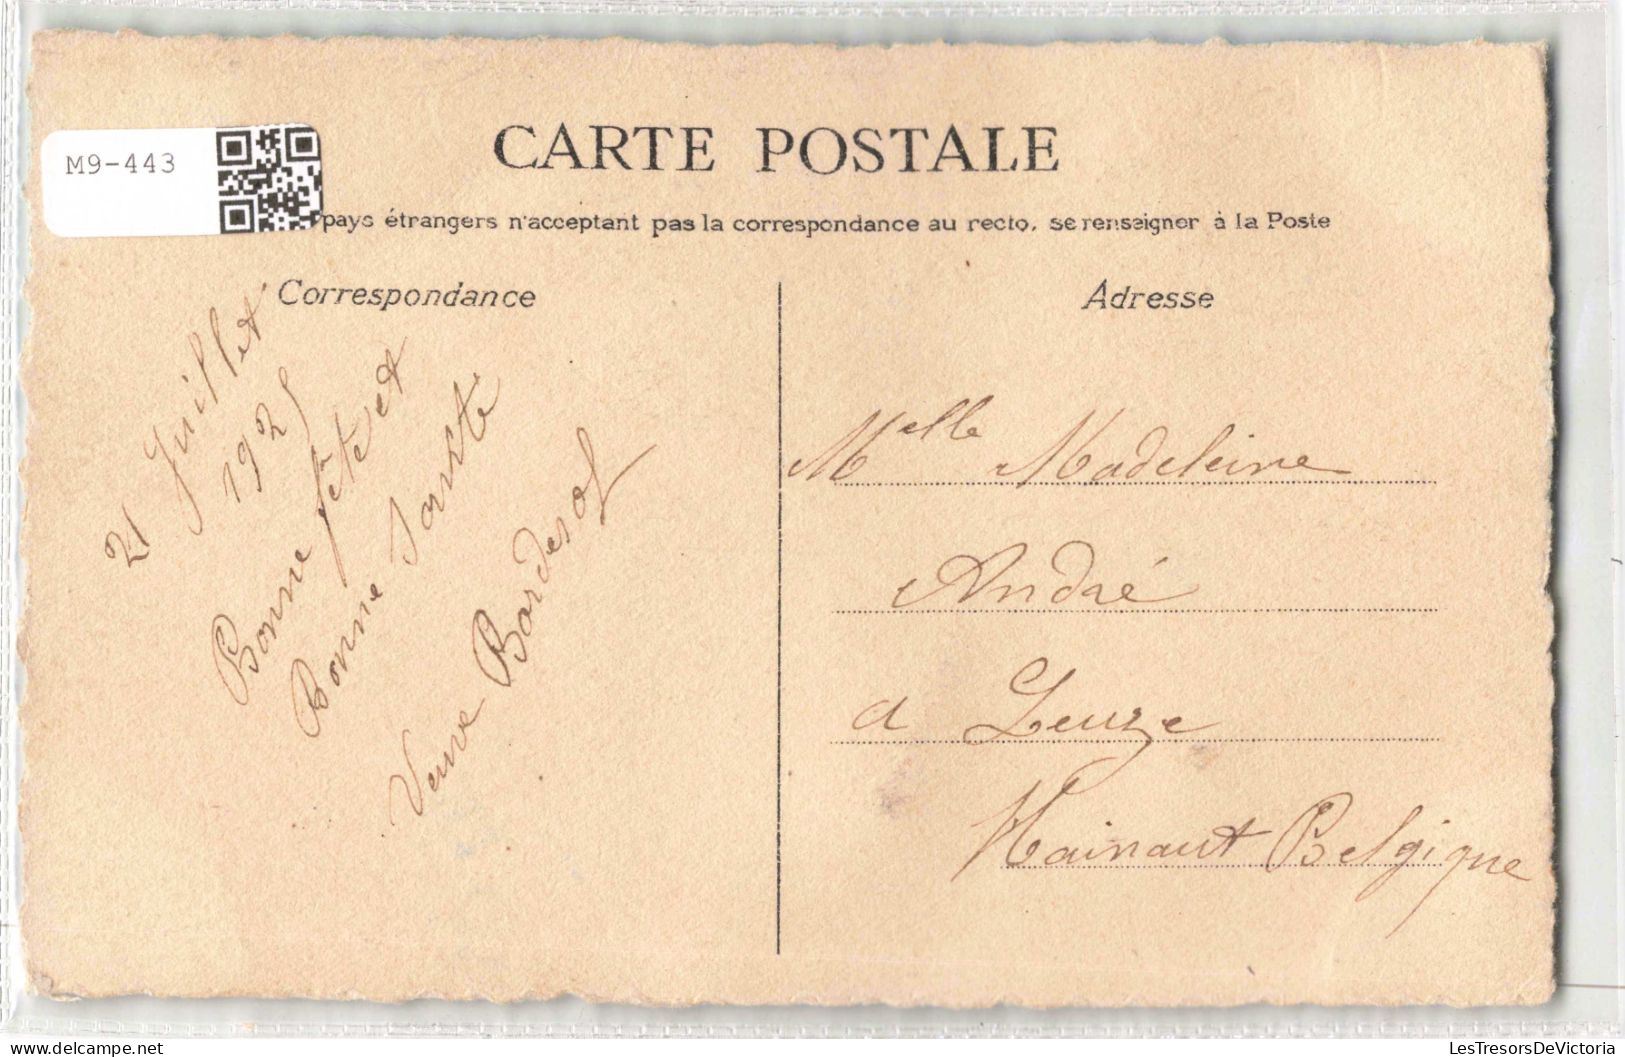 CARTE POSTALE
M9-443
pays étrangers n'acceptant pas la correspondance au recto, se renseigner à la Poste
Correspondance
21 Juillet
1925
Bonne fête et
Bonne Sante
Veuve
Adresse
Melle Madeleine
André
a Leuze
Hainaut Belgique
LesTresorsDeVictoria